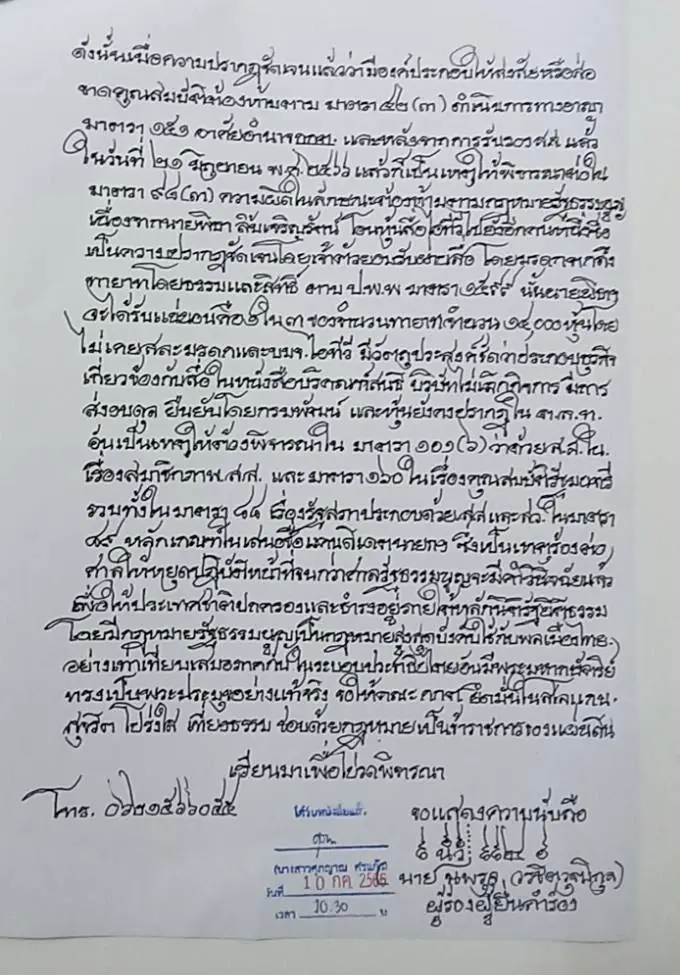 ดังนั้นเมื่อความปรากฏชัดเจนแล้วว่ามีองค์ประกอบให้สงสัยหรือส่อ
ขาดคุณสมบัติต้องห้ามตาม มาตรา ๔๒(๓) ดำเนินการทางอาญา
มาตรา ๑๕๑ อาศัยอำนาจกกต. และหลังจากการรับรองส.ส แล้ว
ในวันที่ ๒๑ มิถุนายน พ.ศ.๒๕๖๖ แล้วก็เป็นเหตุให้พิจารณาต่อใน
มาตรา ๙๘(๓) ความผิดในลักษณะต้องห้ามตามกฎหมายรัฐธรรมนูญ
เนื่องจากนายพิธา ลิ้มเจริญรัตน์ โอนหุ้นสื่อไอทีวีไปยังอีกคนหนึ่งซึ่ง
เป็นความปรากฏชัดเจนโดยเจ้าตัวยอมรับผ่านสื่อ โดยมรดกตกถึง
ทายาทโดยธรรมและสิทธิ์ ตาม ป.พ.พ มาตรา ๑๕๙๙ นั้นนายพิธา
จะได้รับแน่นอนคือ ใน ๓ ของจำนวนทายาทจำนวน ๑๔,๐๐๐ หุ้นโดย
ไม่เคยสละมรดกและบมจ.ไอทีวี มีวัตถุประสงค์ชัดว่าประกอบธุรกิจ
เกี่ยวข้องกับสื่อ ในหนังสือบริคณห์สนธิ บริษัทไม่เลิกกิจการ มีการ
ส่งงบดุล ยืนยันโดยกรมพัฒน์ และหุ้นยังคงปรากฏใน ต.ล.ท.
อันเป็นเหตุให้ต้องพิจารณาใน มาตรา ๑๐๑(๖) ว่าด้วยส.ส.ใน
เรื่องสมาชิกภาพ.ส.ส. และมาตรา ๑๖๐ ในเรื่องคุณสมบัติรัฐมนตรี
รวมทั้งในมาตรา เรื่องรัฐสภาประกอบด้วย.ส.ส และสว. ในมาตรา
หลักเกณฑ์ในเสนอชื่อแคนดิเดตนายกฯ ซึ่งเป็นเหตุร้องต่อ
ศาลให้หยุดปฏิบัติหน้าที่จนกว่าศาลรัฐธรรมนูญจะมีคำวินิจฉัยแล้ว
เพื่อให้ประเทศชาติปกครองและธำรงอยู่ภายใต้หลักนิติรัฐนิติธรรม
โดยมีกฎหมายรัฐธรรมนูญเป็นกฎหมายสูงสุดบังคับใช้กับพลเมืองไทย
อย่างเท่าเทียมเสมอภาคกันในระบอบประชาธิปไตยอันมีพระมหากษัตริย์
ทรงเป็นพระประมุขอย่างแท้จริง ขอให้คณะ กกต ยึดมั่นในสโลแกน
สุจริต โปร่งใส เที่ยงธรรม ชอบด้วยกฎหมายเป็นข้าราชการของแผ่นดิน
เรียนมาเพื่อโปรดพิจารณา
โทร. ๐๖๒๑๕๖๖๐๕๕
ขอแสดงความนับถือ
ได้รับหนังสือแล้ว
วันที่ 10 กค 2566
เวลา 10.30 น
นาย นพรุจ วรชิตวุฒิกุล)
ผู้ร้องผู้ยื่นคำร้อง